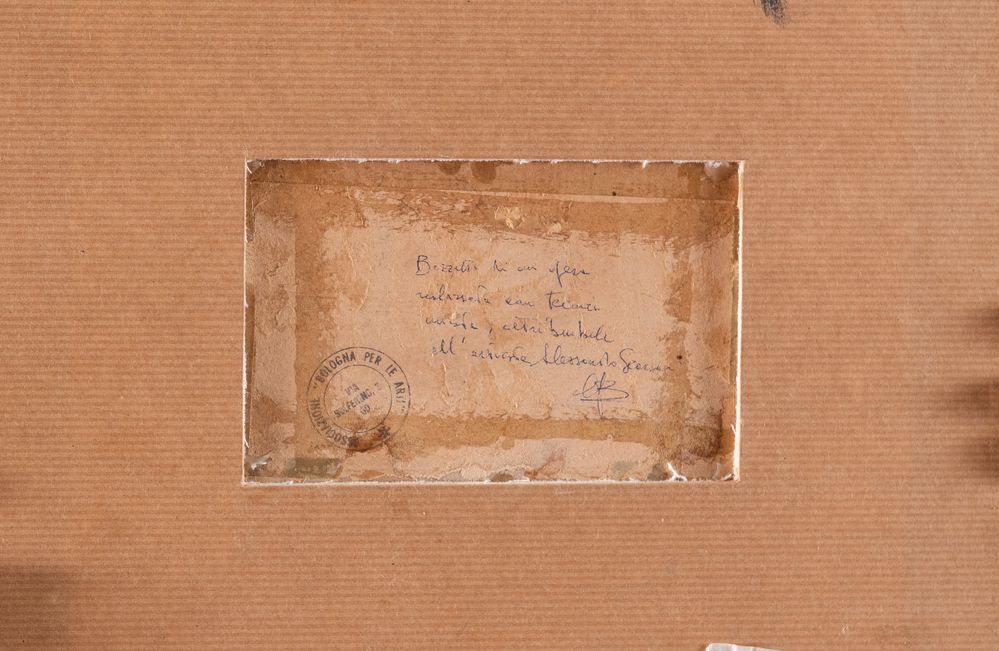 Bozzetto di un'opera
realizzata con tecnica
mista, attribuibile
all'artista Alessandro
ASSOCIAZIONE "BOLOGNA PER LE ARTI"
VIA